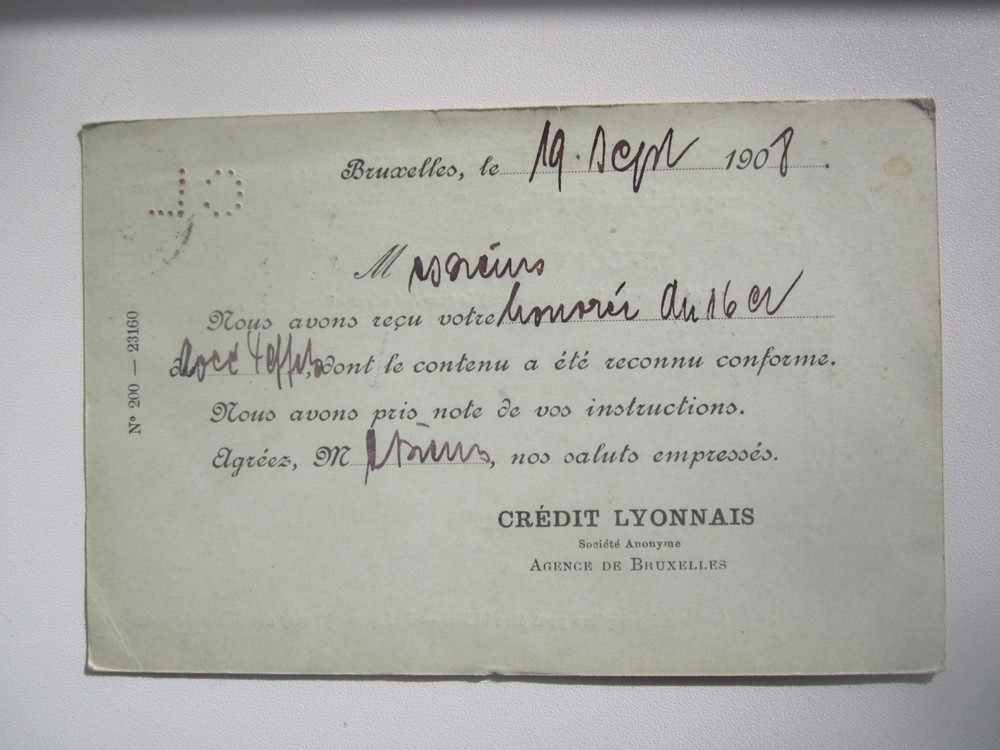 Bruxelles, le 19. Sept 1908.
CL
Messieurs
Nous avons reçu votre honorée du 16 ct
avec 4 effets, dont le contenu a été reconnu conforme.
Nous avons pris note de vos instructions.
Agréez, Messieurs, nos saluts empressés.
CRÉDIT LYONNAIS
Société Anonyme
AGENCE DE BRUXELLES
N° 200 — 23160